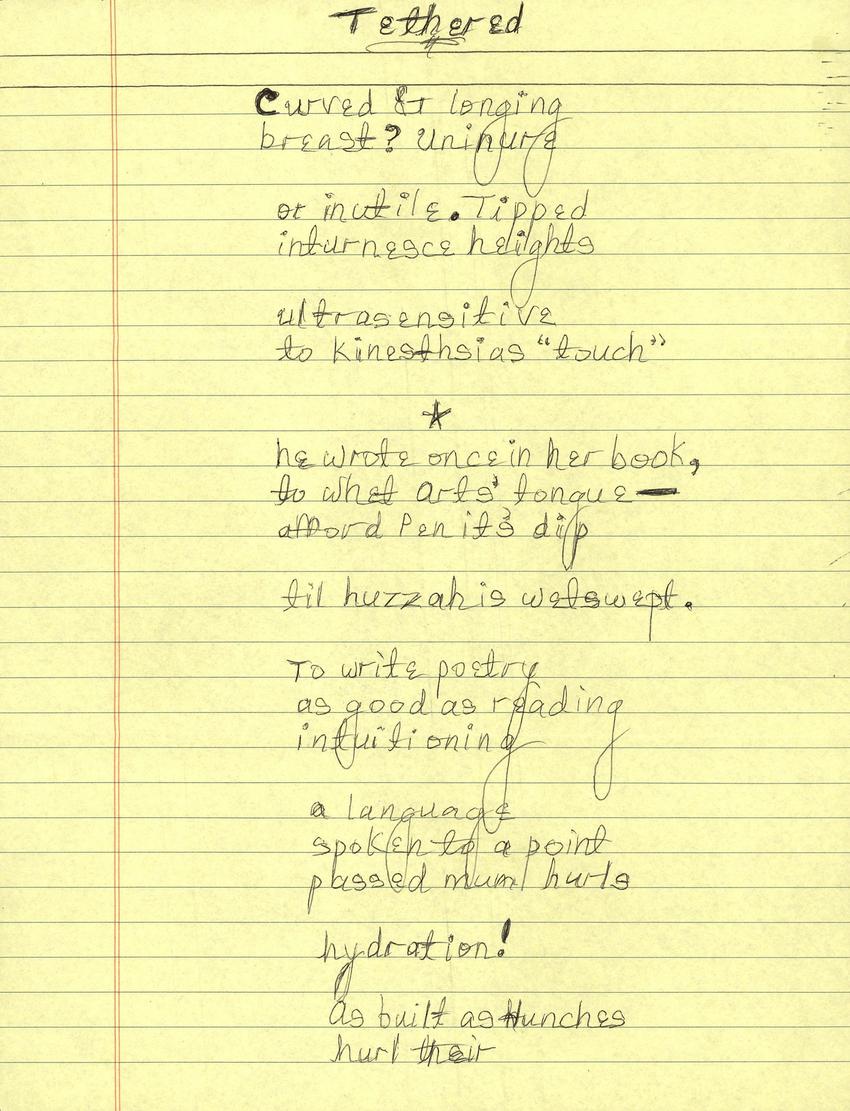 Tethered
Curved & longing
breast? Uninjure
or inutile. Tipped
inturnesce heights
ultrasensitive
to kinesthsias "touch"
*
he wrote once in her book,
to whet arts' tongue—
afford Pen it's dip
til huzzah is wetswept.
To write poetry
as good as reading
intuitioning
a language
spoken to a point
passed mum hurls
hydration!
As built as Hunches
hurl their